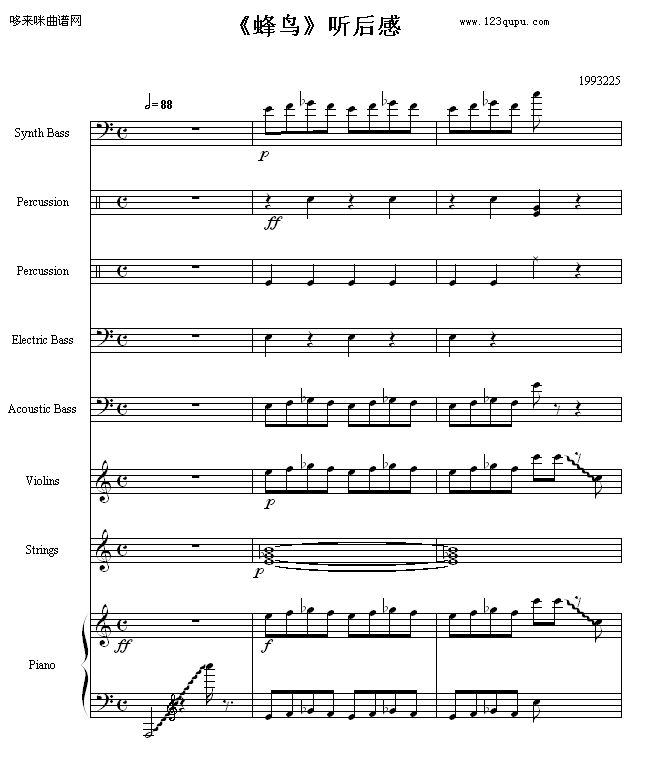 哆来咪曲谱网
《蜂鸟》听后感
www.123qupu.com
1993225
=88
Synth Bass
p
Percussion
ff
Percussion
Electric Bass
Acoustic Bass
Violins
p
Strings
p
ff
f
Piano